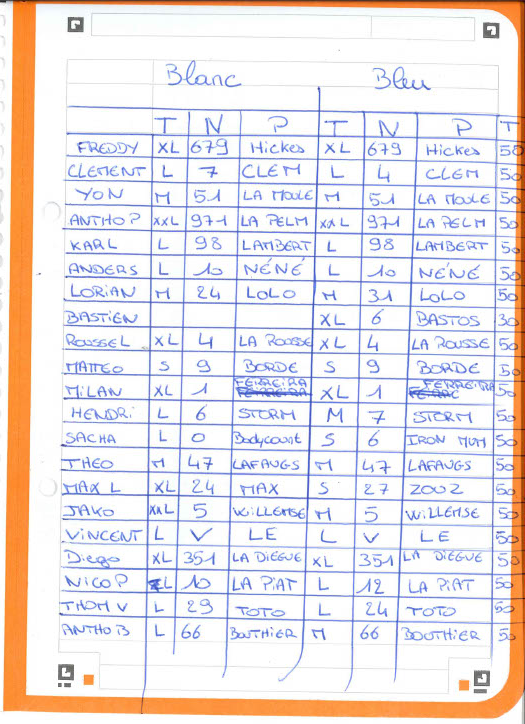 Blanc Bleu
T N P T N P T
FREDDY XL 679 Hickes XL 679 Hickes 50
CLEMENT L 7 CLEM L 4 CLEM 50
YON M 51 LA MOULE M 51 LA MOULE 50
ANTHO P XXL 971 LA PELM XXL 971 LA PELM 50
KARL L 98 LAMBERT L 98 LAMBERT 50
ANDERS L 10 NÉNÉ L 10 NÉNÉ 50
LORIAN M 24 LOLO M 31 LOLO 50
BASTIEN XL 6 BASTOS 30
ROUSSEL XL 4 LA ROUSSE XL 4 LA ROUSSE 50
MATTEO S 9 BORDE S 9 BORDE 50
MILAN XL 1 FERREIRA XL 1 FERREIRA 50
HENDRI L 6 STORM M 7 STORM 50
SACHA L 0 Bodycount S 6 IRON MUM 50
THEO M 47 LAFAUGS M 47 LAFAUGS 50
MAX L XL 24 MAX S 27 ZOUZ 50
JAKO XXL 5 WILLEMSE M 5 WILLEMSE 50
VINCENT L V LE L V LE 50
Diego XL 351 LA DIEGUE XL 351 LA DIEGUE 50
NICO P L 10 LA PIAT L 12 LA PIAT 50
THOM V L 29 TOTO L 24 TOTO 50
ANTHO B L 66 BOUTHIER M 66 BOUTHIER 50